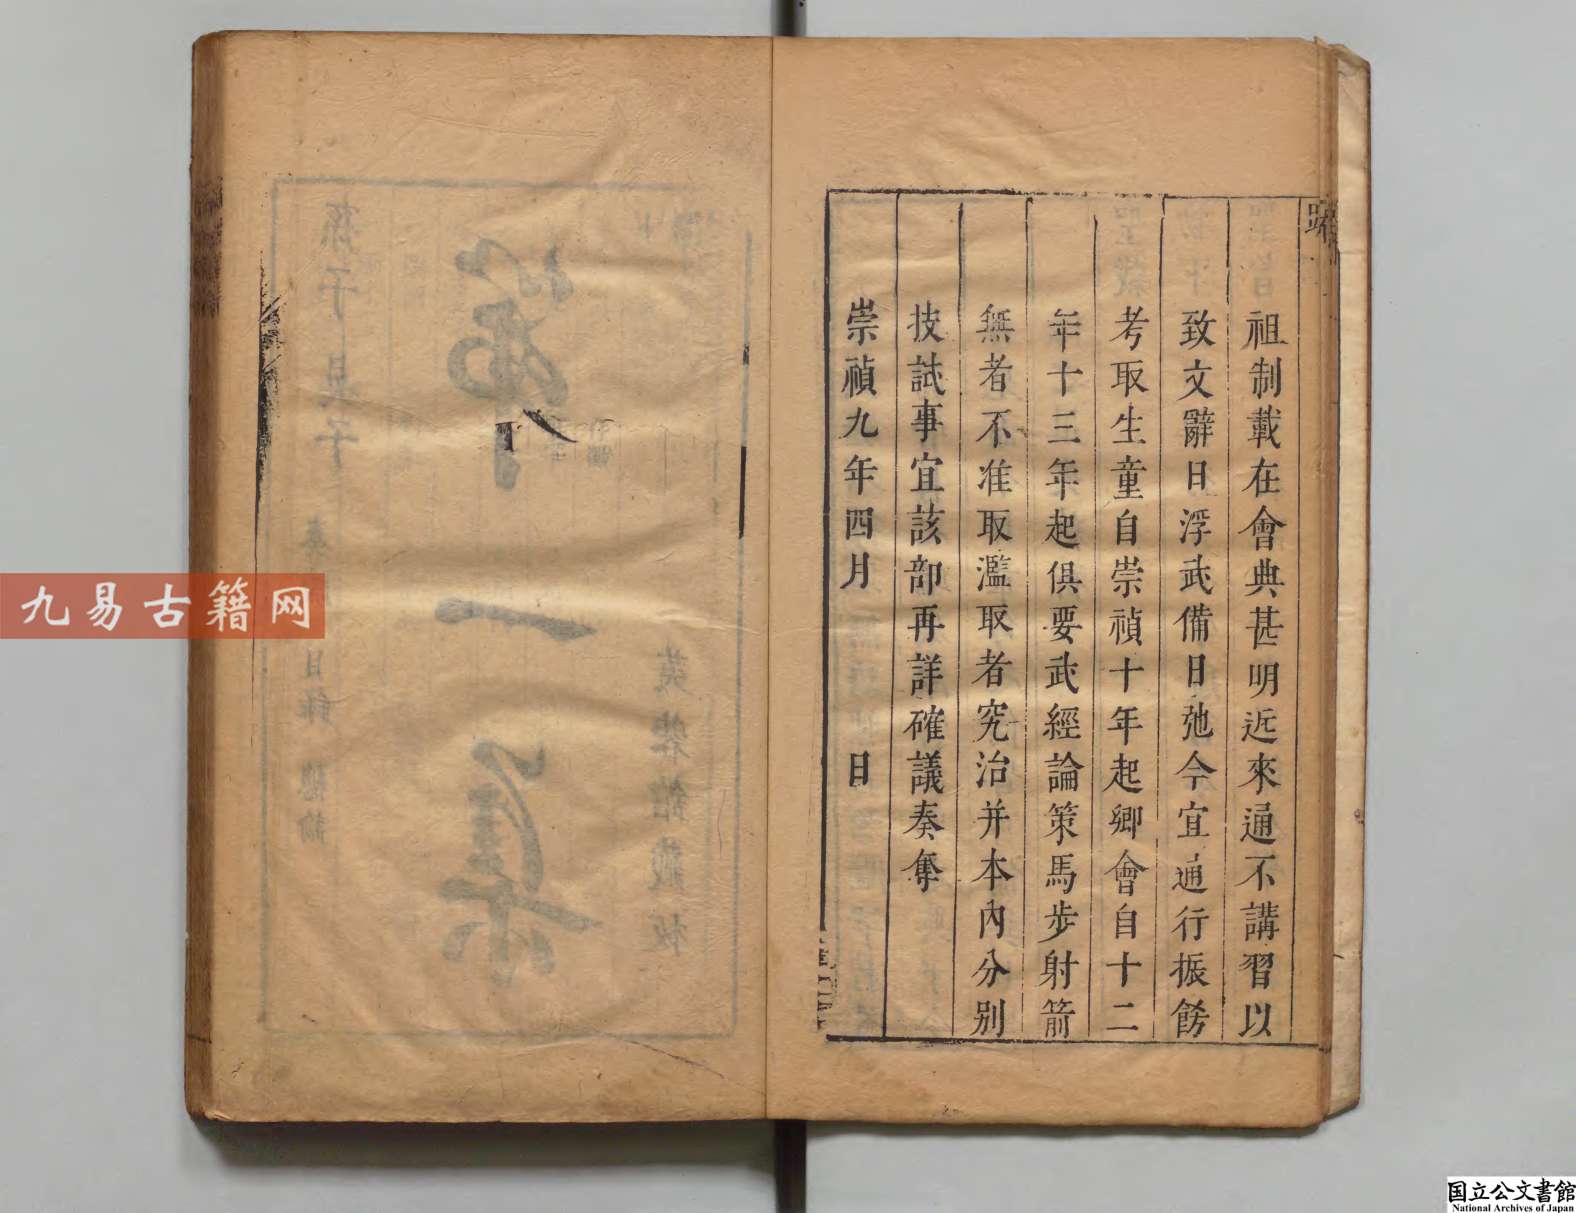 祖制載在會典甚明近來通不講習以
致文辭日浮武備日弛今宜通行振餝
考取生童自崇禎十年起鄉會自十二
年十三年起俱要武經論策馬步射箭
無者不准取濫取者究治并本內分別
技試事宜該部再詳確議奏奪
崇禎九年四月 日
第
一
集
孫子 吳子
目錄 總論
英榮館藏板
九易古籍网
国立公文書館
National Archives of Japan